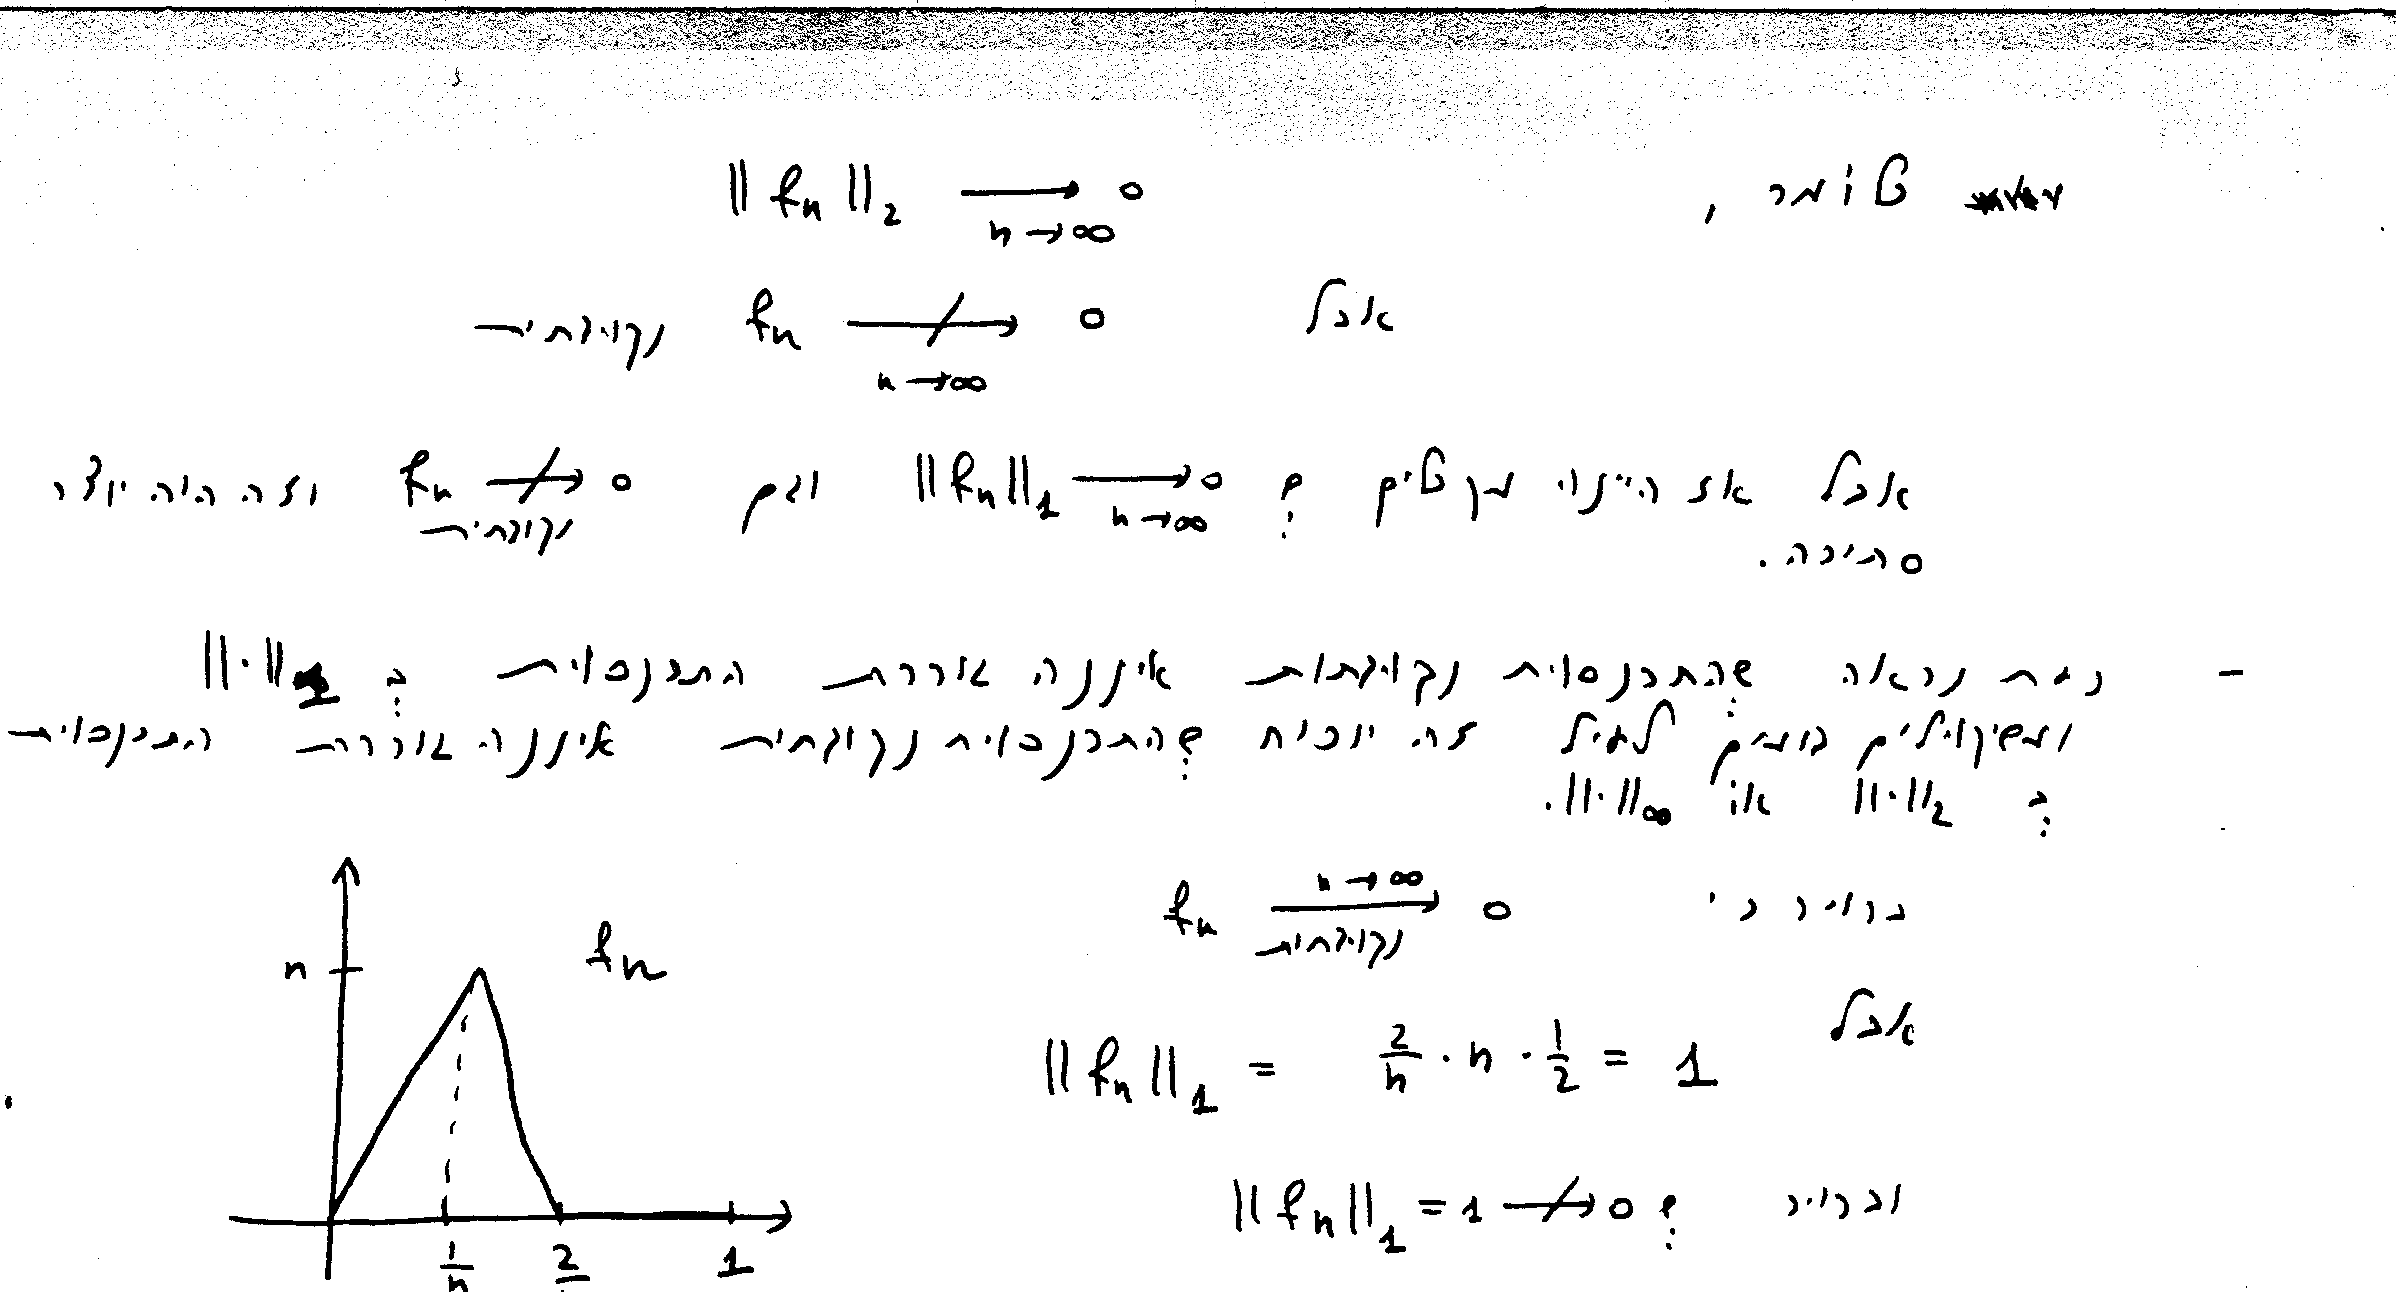 לומר, ‖fₙ‖₂ ⟶ 0 n→∞
אבל fₙ ↛ 0 n→∞ נקודתית
אבל אז היינו מקבלים ש: ‖fₙ‖₁ ⟶ 0 n→∞ וגם fₙ ↛ 0 נקודתית וזה היה יוצר
סתירה.
- כעת נראה שהתכנסות נקודתית איננה גוררת התכנסות ב: ‖·‖₁
ומשיקולים דומים לעיל זה יוכיח שהתכנסות נקודתית איננה גוררת התכנסות
ב: ‖·‖₂ או ‖·‖∞.
ברור כי fₙ ⟶ 0 n→∞ נקודתית
אבל ‖fₙ‖₁ = 2/n · n · 1/2 = 1
וברור ש: ‖fₙ‖₁ = 1 ↛ 0
fₙ
n
1/n 2/ 1